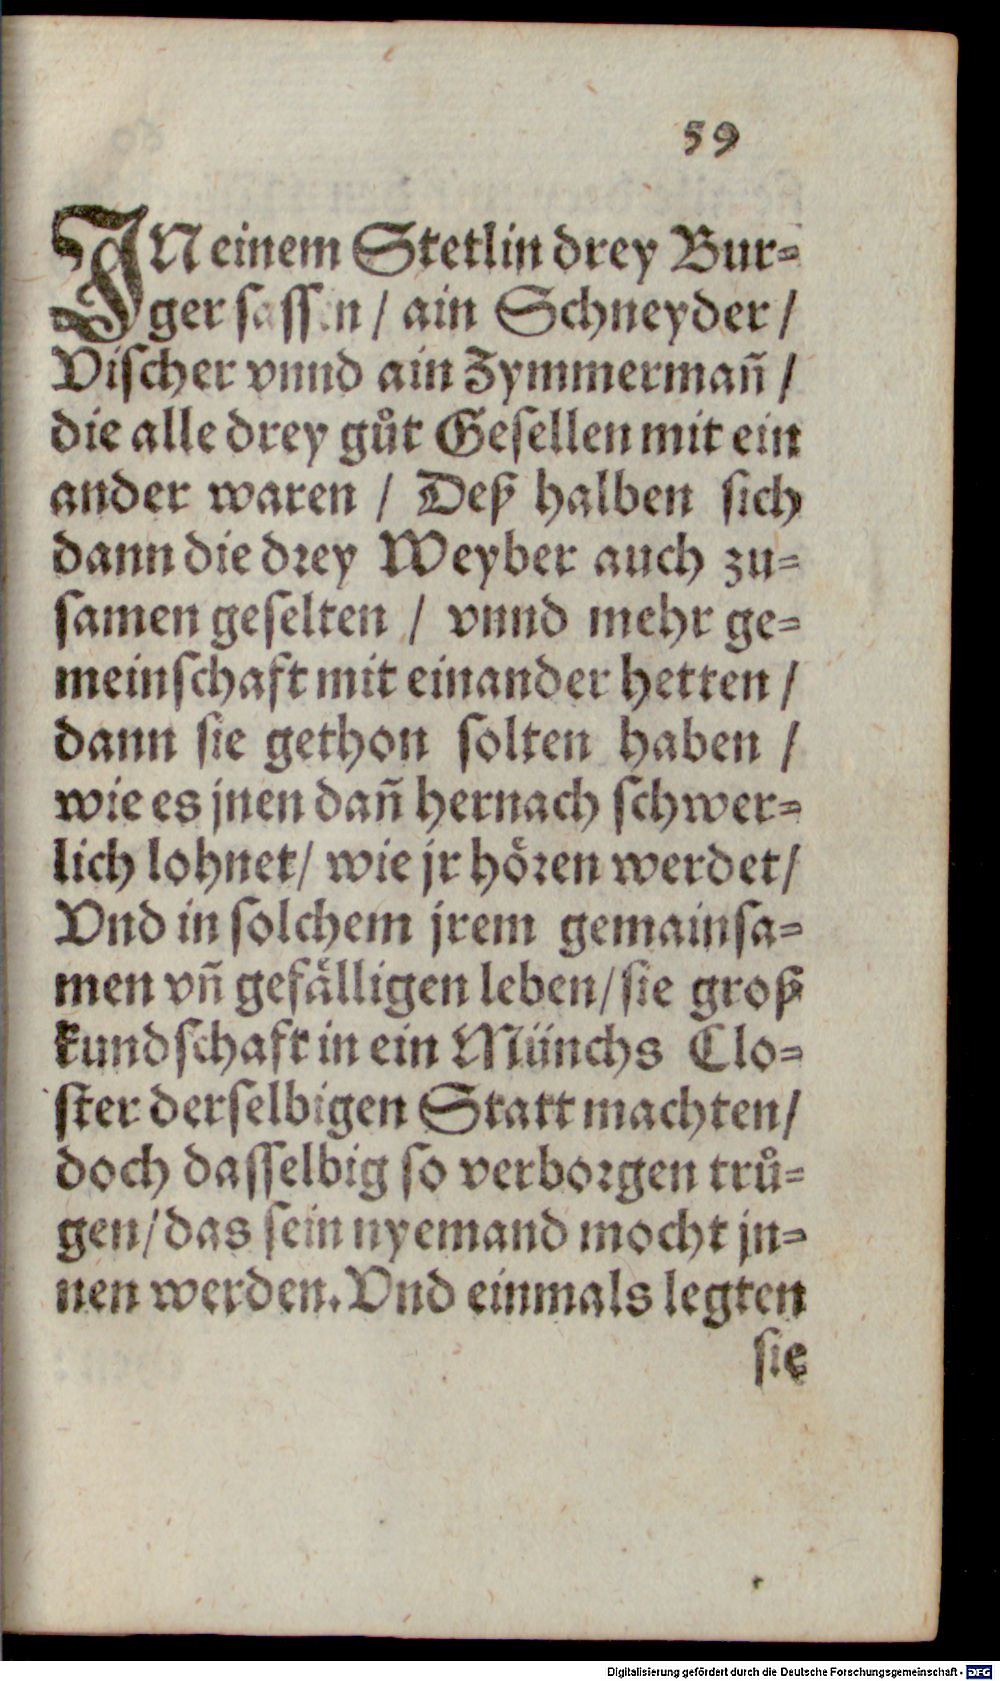 59
JN einem Stetlin drey Bur=
ger sassen / ain Schneyder /
Vischer vnnd ain Zymmermañ /
die alle drey gůt Gesellen mit ein
ander waren / Deß halben sich
dann die drey Weyber auch zu=
samen geselten / vnnd mehr ge=
meinschaft mit einander hetten /
dann sie gethon solten haben /
wie es jnen dañ hernach schwer=
lich lohnet / wie jr hoͤren werdet /
Vnd in solchem jrem gemainsa=
men vñ gefaͤlligen leben / sie groß
kundschaft in ein Münchs Clo=
ster derselbigen Statt machten /
doch dasselbig so verborgen trů=
gen / das sein nyemand mocht jn=
nen werden. Vnd einmals legten
sie
Digitalisierung gefördert durch die Deutsche Forschungsgemeinschaft - DFG